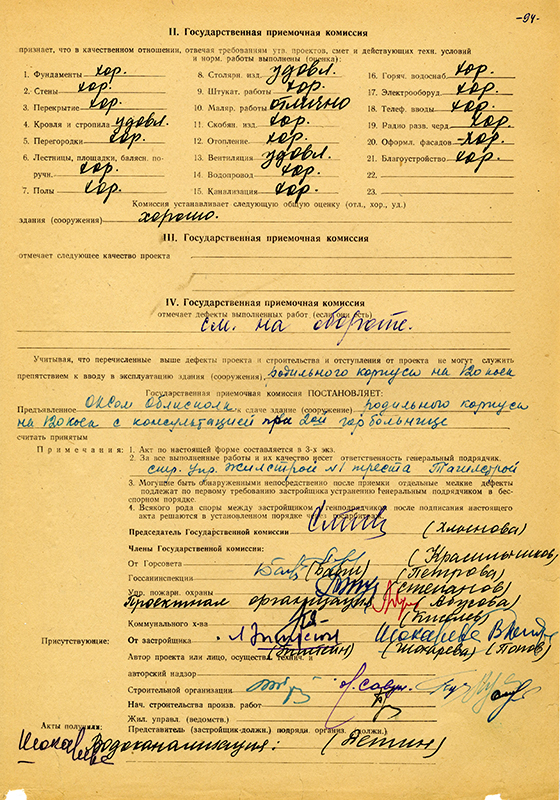 -94-
II. Государственная приемочная комиссия
признает, что в качественном отношении, отвечая требованиям утв. проектов, смет и действующих техн. условий
и норм. работы выполнены (оценка):
1. Фундаменты хор.
2. Стены хор.
3. Перекрытие хор.
4. Кровля и стропила удовл.
5. Перегородки хор.
6. Лестницы, площадки, балясн. по-
ручн. хор.
7. Полы хор.
8. Столярн. изд. удовл.
9. Штукат. работы хор.
10. Маляр. работы отлично
11. Скобян. изд. хор.
12. Отопление хор.
13. Вентиляция удовл.
14. Водопровод хор.
15. Канализация хор.
16. Горяч. водоснаб. хор.
17. Электрооборуд. хор.
18. Телеф. вводы хор.
19. Радио разв. черд. хор.
20. Оформл. фасадов хор.
21. Благоустройство хор.
22.
23.
Комиссия устанавливает следующую общую оценку (отл., хор., уд.)
здания (сооружения) хорошо.
III. Государственная приемочная комиссия
отмечает следующее качество проекта
IV. Государственная приемочная комиссия
отмечает дефекты выполненных работ (если они есть)
см. на обороте.
Учитывая, что перечисленные выше дефекты проекта и строительства и отступления от проекта не могут служить
препятствием к вводу в эксплуатацию здания (сооружения) родильного корпуса на 120 коек
Государственная приемочная комиссия ПОСТАНОВЛЯЕТ:
Предъявленное ОКСом Облисполк. к сдаче здание (сооружение) родильного корпуса
на 120 коек с консультацией при 2ой горбольнице
считать принятым
Примечания: 1. Акт по настоящей форме составляется в 3-х экз.
2. За все выполненные работы и их качество несет ответственность генеральный подрядчик.
стр. упр. Жилстрой №1 треста Тагилстрой
3. Могущие быть обнаруженными непосредственно после приемки отдельные мелкие дефекты
подлежат по первому требованию застройщика устранению генеральным подрядчиком в бес-
спорном порядке.
4. Всякого рода споры между застройщиком и генподрядчиком после подписания настоящего
акта решаются в установленном порядке через госарбитраж.
Председатель Государственной комиссии (Хлопнова)
Члены Государственной комиссии:
От Горсовета (Красильников)
Госсаинспекции (Петрова)
Упр. пожарн. охраны (Степанов)
Проектная организация Абусова
Коммунального х-ва (Киселев)
Присутствующие: От застройщика Шокарева
(Шокарева) (Попов)
Автор проекта или лицо, осуществ. технич. и
авторский надзор
Строительной организации
Нач. строительства произв. работ
Жил. управл. (ведомств.)
Акты получили: Представитель (застройщик-должн.) подряди. орган. должн.)
Водоканализация: (Петтин)